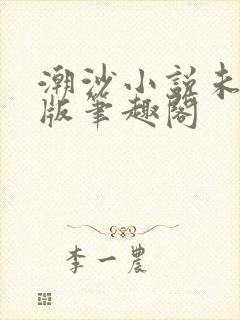 潮沙小説未
版筆趣閣
李一農